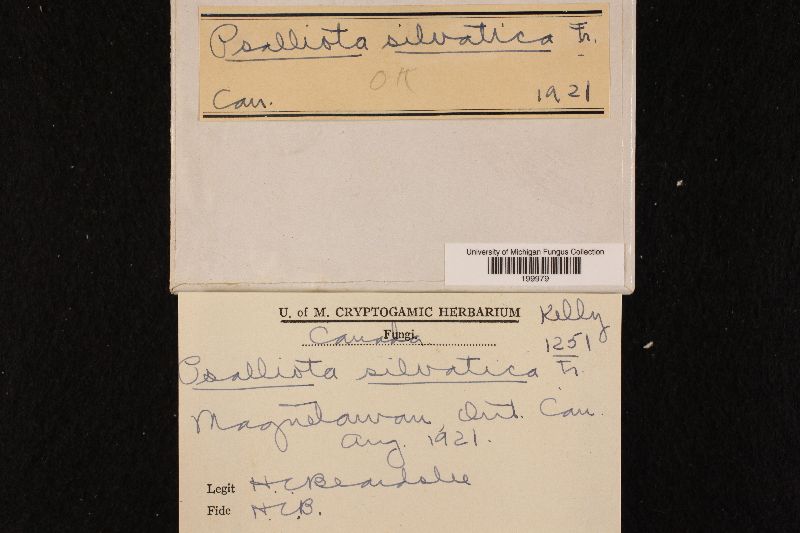 Psalliota silvatica Fr.
OK
Can. 1921
University of Michigan Fungus Collection
199979
U. of M. CRYPTOGAMIC HERBARIUM
Kelly
1251
Fungi
Canada
Psalliota silvatica Fr.
Magnetawan, Ont. Can.
Aug. 1921.
Legit H.C. Beardslee
Fide H.C.B.